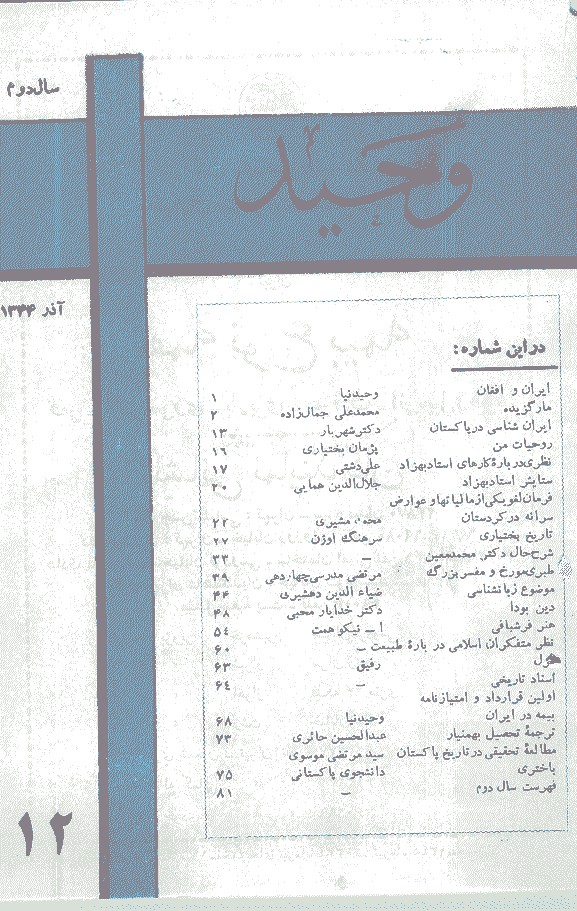 سال دوم
وحید
آذر ۱۳۴۴
در این شماره:
ایران و افغان وحیدنیا ۱
مارگزیده محمدعلی جمال‌زاده ۲
ایران شناسی در پاکستان دکتر شهریار ۱۳
روحیات من پژمان بختیاری ۱۶
نظری در بارهٔ کارهای استاد بهزاد علی دشتی ۱۷
ستایش استاد بهزاد جلال‌الدین همایی ۲۰
فرمان لغو یکی از مالیاتها و عوارض
سرانه در کردستان مشیری ۲۲
تاریخ بختیاری سرهنگ اوژن ۲۷
شرح حال دکتر محمد معین – ۳۳
طبری مورخ و مفسر بزرگ مرتضی مدرسی چهاردهی ۳۹
موضوع زبانشناسی ضیاء الدین دهشیری ۴۴
دین بودا دکتر خدایار محبی ۴۸
هنر فرشبافی ا – نیکو همت ۵۴
نظر متفکران اسلامی در بارهٔ طبیعت – ۶۰
رفیق ۶۳
اسناد تاریخی – ۶۴
اولین قرارداد و امتیازنامه
بیمه در ایران وحیدنیا ۶۸
ترجمهٔ تحصیل بهمنیار عبدالحسین حائری ۷۳
مطالعهٔ تحقیقی در تاریخ پاکستان سید مرتضی موسوی
باختری دانشجوی پاکستانی ۷۵
فهرست سال دوم – ۸۱
۱۲